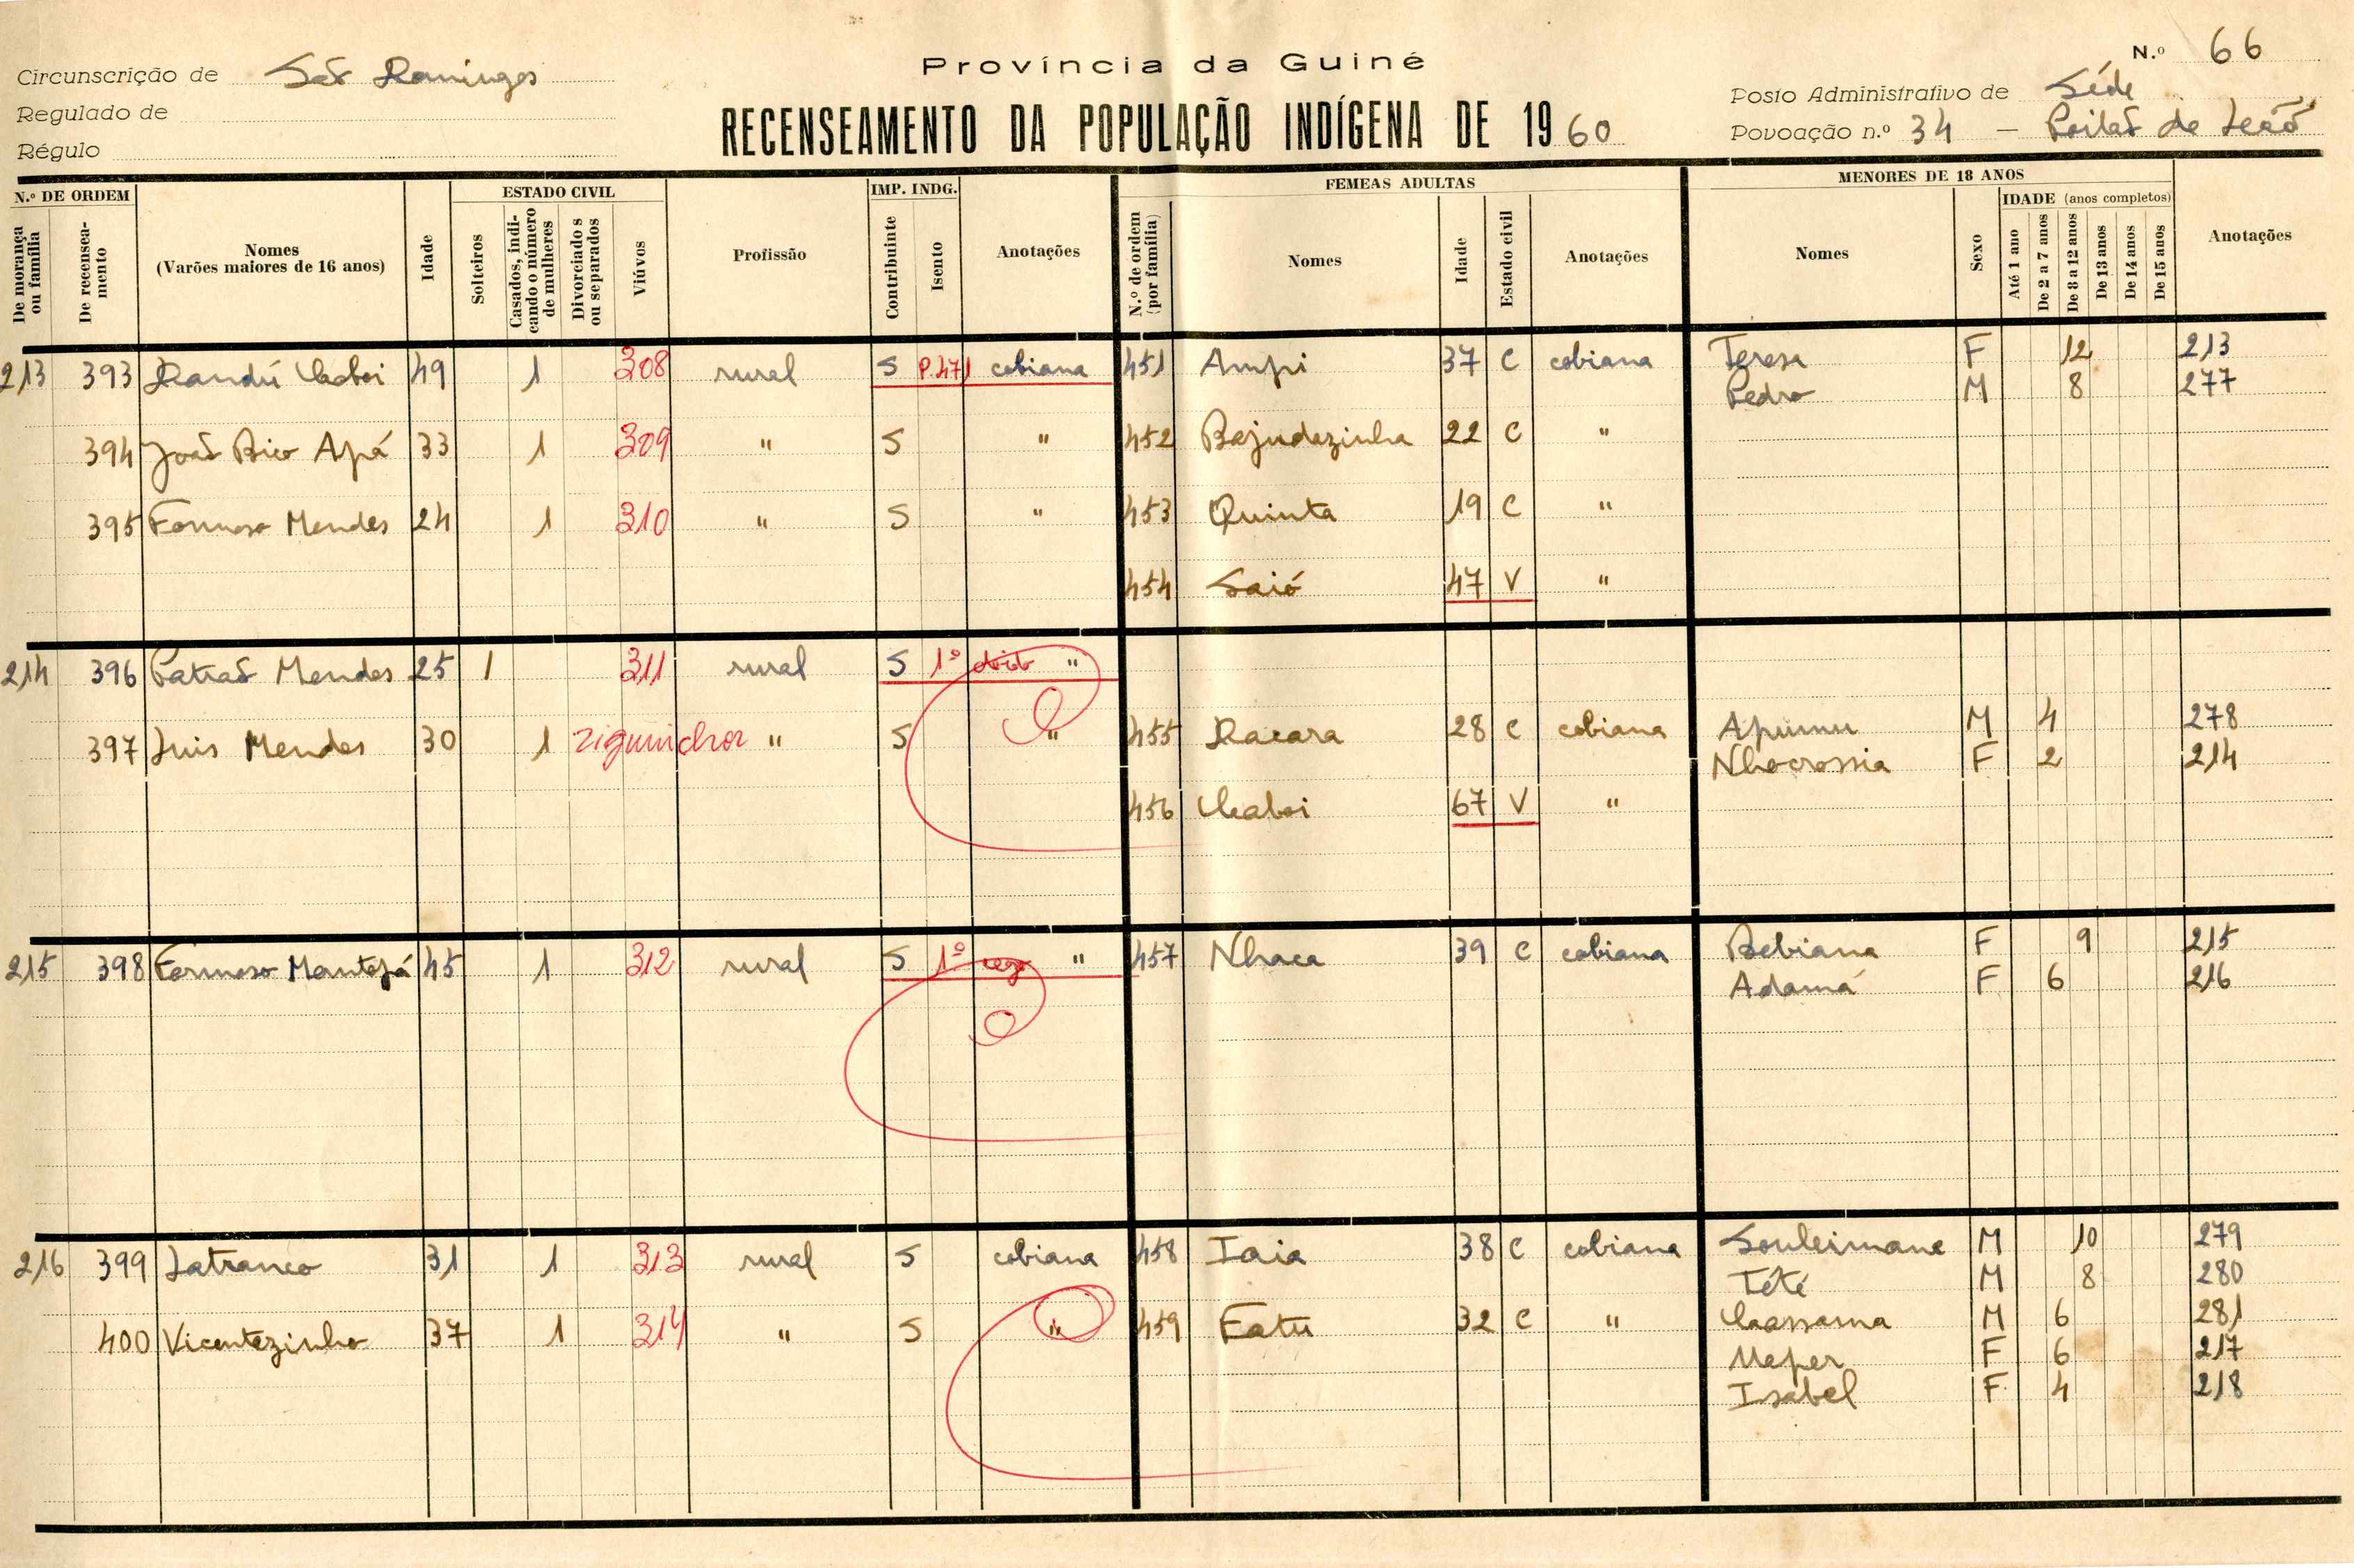 Província da Guiné
N.º 66
Circunscrição de São Domingos
Regulado de
Régulo
RECENSEAMENTO DA POPULAÇÃO INDÍGENA DE 1960
Posto Administrativo de Séde
Povoação n.º 34 — Poilão de Leão
N.º DE ORDEM
De morança ou família
De recensea-mento
Nomes
(Varões maiores de 16 anos)
Idade
ESTADO CIVIL
Solteiros
Casados, indi-cando o número de mulheres
Divorciados ou separados
Viúvos
Profissão
IMP. INDG.
Contribuinte
Isento
Anotações
FEMEAS ADULTAS
N.º de ordem (por família)
Nomes
Idade
Estado civil
Anotações
MENORES DE 18 ANOS
Nomes
Sexo
IDADE (anos completos)
Até 1 ano
De 2 a 7 anos
De 8 a 12 anos
De 13 anos
De 14 anos
De 15 anos
Anotações
213 393 Dandú Caboi 49 1 308 rural S P.471 cobiana 451 Ampi 37 C cobiana Teresa F 12 213
Pedro M 8 277
394 João Bico Apá 33 1 309 " S " 452 Bajudazinha 22 C "
395 Formoso Mendes 24 1 310 " S " 453 Quinta 19 C "
454 Saió 47 V "
214 396 Patrão Mendes 25 1 311 rural S 1º "
397 Luis Mendes 30 1 Ziguinchor " S " 455 Dacara 28 C cobiana Apumu M 4 278
Nhocrossia F 2 214
456 Caboi 67 V "
215 398 Formoso Mantejá 45 1 312 rural S 1º " 457 Nhaca 39 C cobiana Bebiana F 9 215
Adamá F 6 216
216 399 Latranco 31 1 313 rural S cobiana 458 Iaia 38 C cobiana Souleimane M 10 279
Tété M 8 280
400 Vicentezinho 37 1 314 " S " 459 Fatu 32 C " Cassama M 6 281
F 6 217
Isabel F 4 218